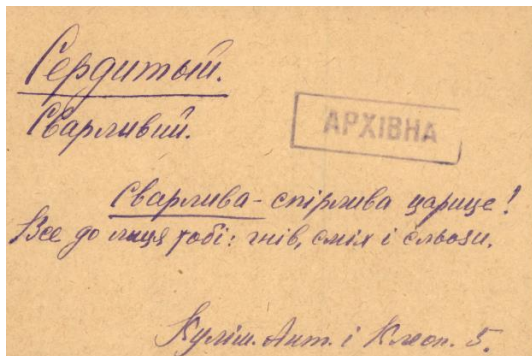 Сердитый.
Сварливий.
АРХІВНА
Сварлива - спірлива царице!
Все до лиця тобі: гнів, сміх і сльози.
Куліш. Ант. і Клеоп. 5.